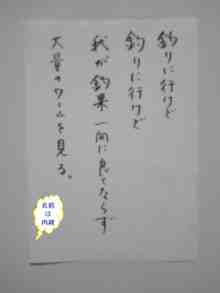 釣りに行けど
釣りに行けど
我が釣果一向に良くならず
大量のワームを見る。
名前は内緒